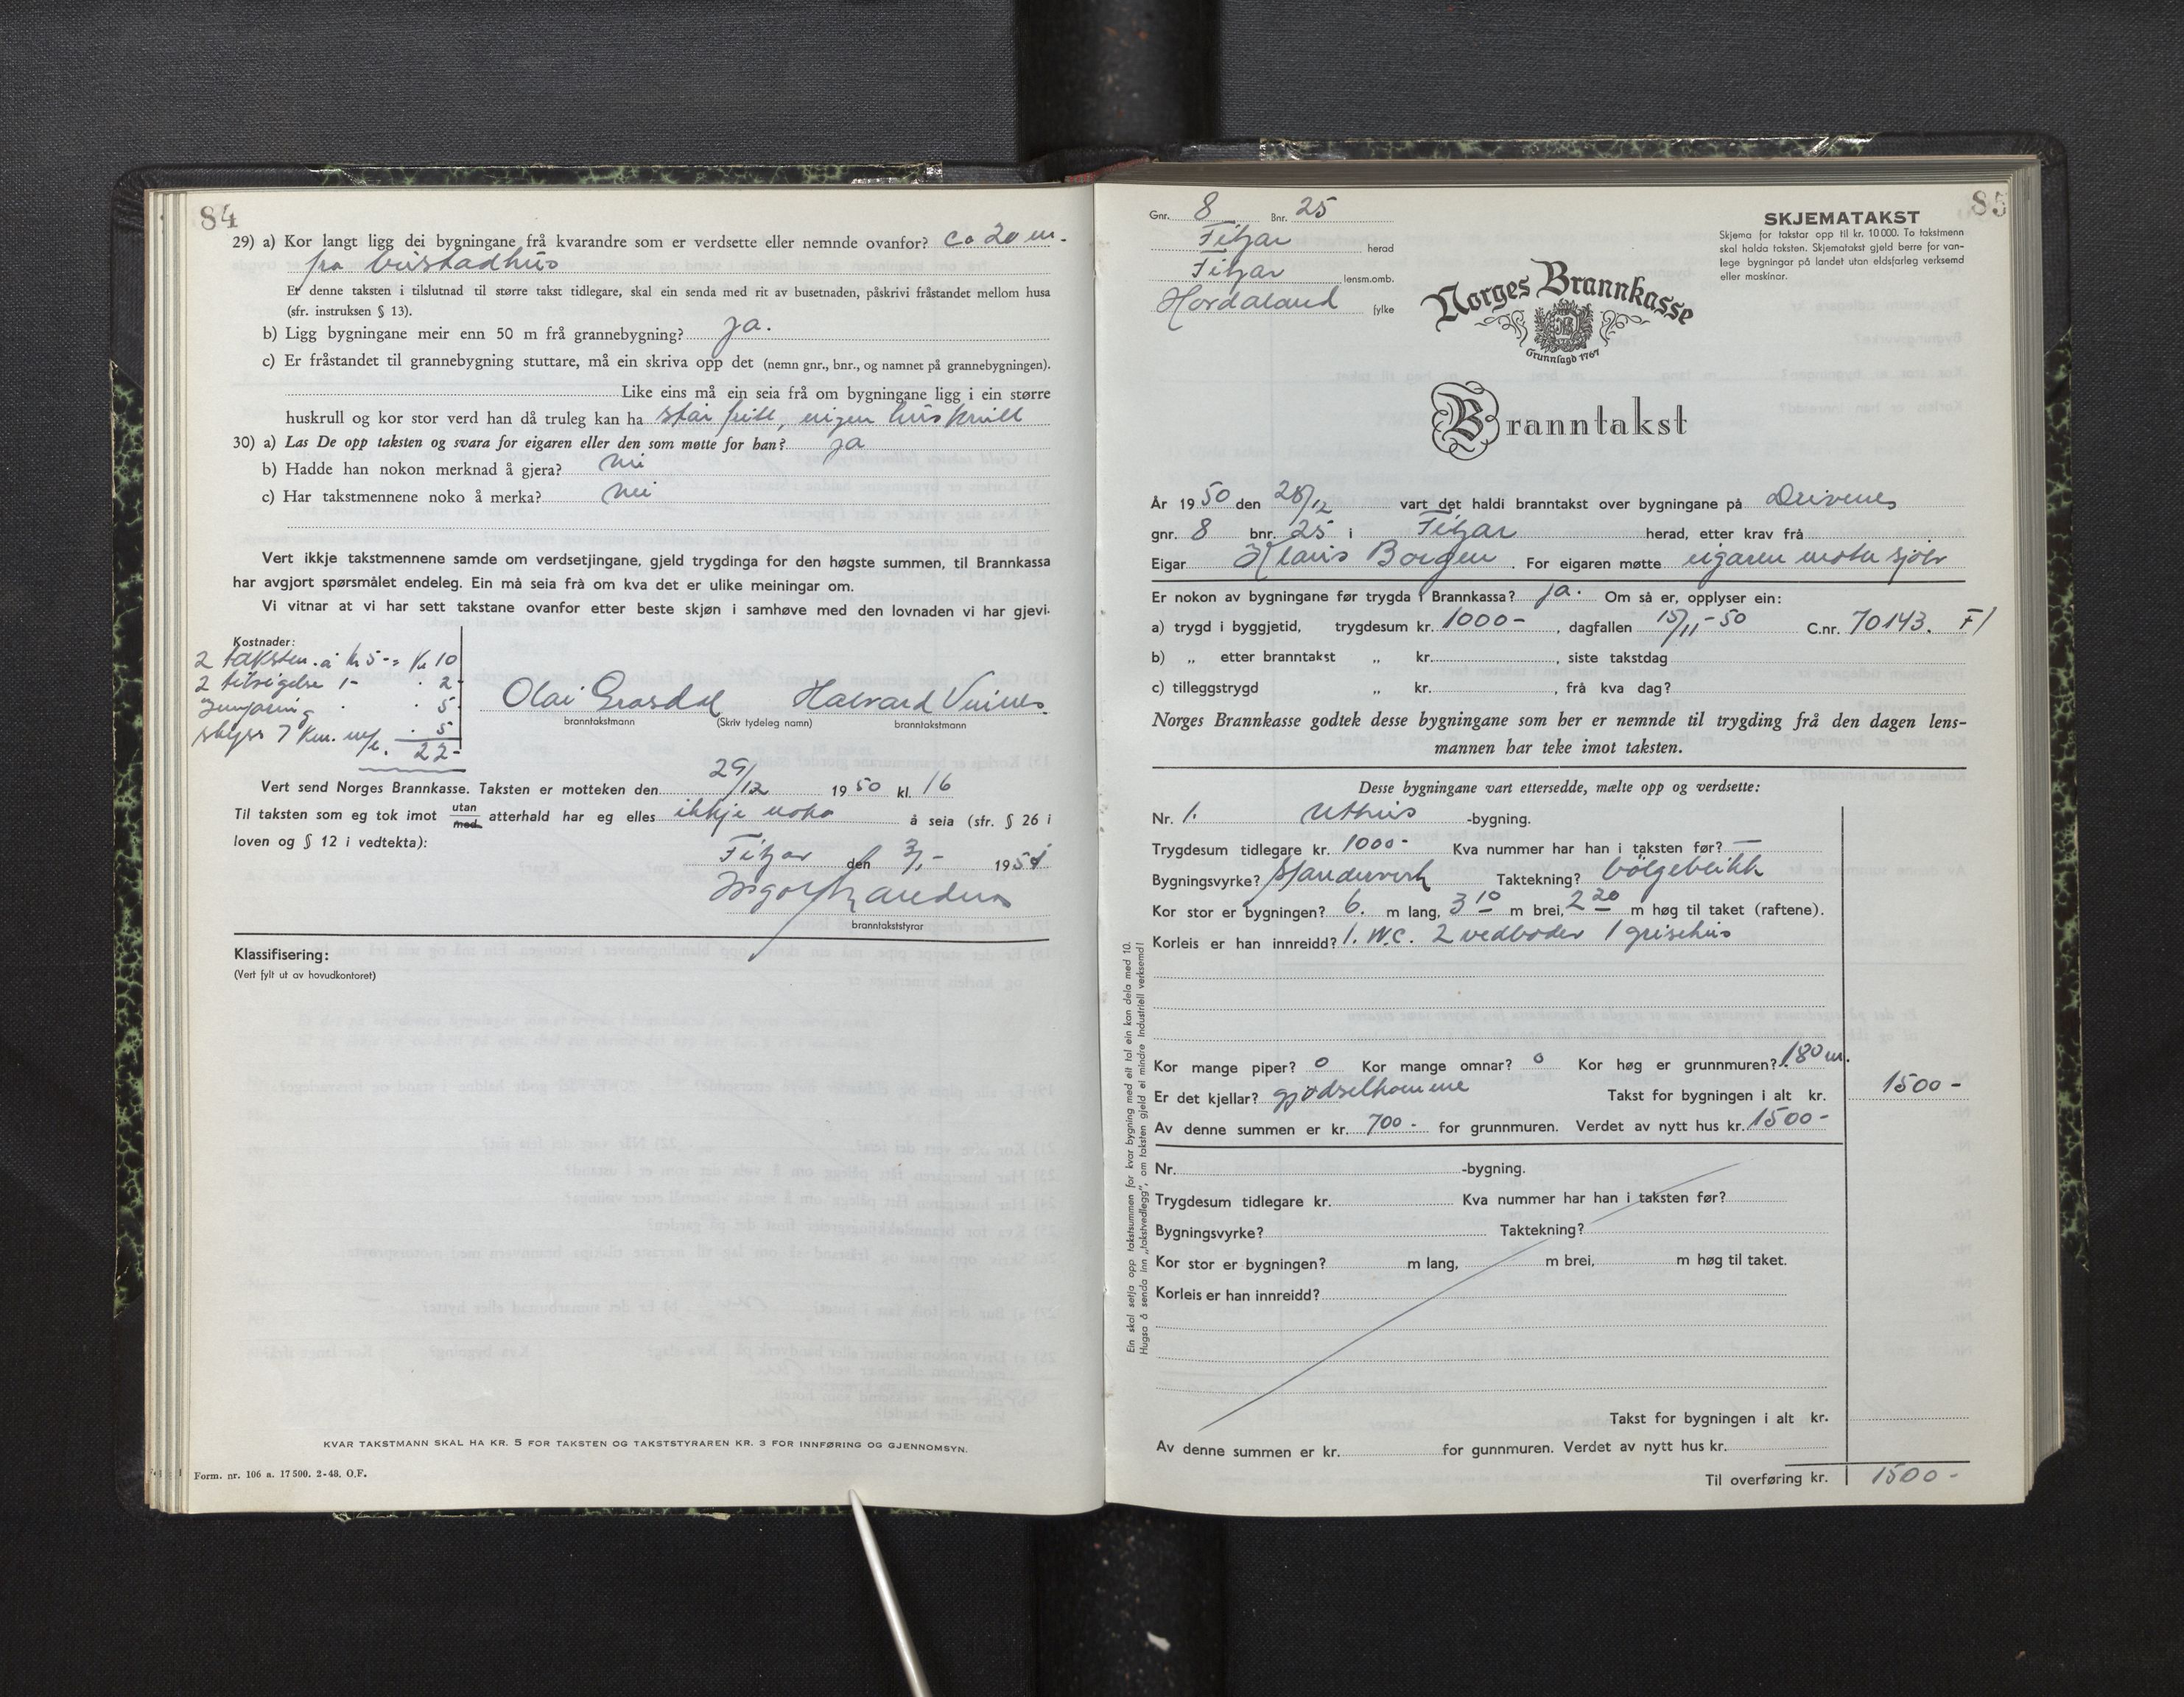 84
29) a) Kor langt ligg dei bygningane frå kvarandre som er verdsette eller nemnde ovanfor? ca 20 m.
fra bustadhus
Er denne taksten i tilslutnad til større takst tidlegare, skal ein senda med rit av busetnaden, påskrivi fråstandet mellom husa
(sfr. instruksen § 13).
b) Ligg bygningane meir enn 50 m frå grannebygning? ja.
c) Er fråstandet til grannebygning stuttare, må ein skriva opp det (nemn gnr., bnr., og namnet på grannebygningen).
Like eins må ein seia frå om bygningane ligg i ein større
huskrull og kor stor verd han då truleg kan ha står fritt, eigen huskrull
30) a) Las De opp taksten og svara for eigaren eller den som møtte for han? ja
b) Hadde han nokon merknad å gjera? nei
c) Har takstmennene noko å merka? nei
Vert ikkje takstmennene samde om verdsetjingane, gjeld trygdinga for den høgste summen, til Brannkassa
har avgjort spørsmålet endeleg. Ein må seia frå om kva det er ulike meiningar om.
Vi vitnar at vi har sett takstane ovanfor etter beste skjøn i samhøve med den lovnaden vi har gjevi.
Kostnader:
2 taksten. á kr 5 -= kr 10
2 tilsigelse 1- . 2-
. 5
skyss 7 km. . 5
22-
Olai Grasdal Halvard Vinnes
branntakstmann (Skriv tydeleg namn) branntakstmann
Vert send Norges Brannkasse. Taksten er motteken den 29/12 1950 kl. 16
Til taksten som eg tok imot utan/med atterhald har eg elles ikkje noko å seia (sfr. § 26 i
loven og § 12 i vedtekta):
Fitjar den 3/1- 1951
branntakststyrar
Klassifisering:
(Vert fylt ut av hovudkontoret)
KVAR TAKSTMANN SKAL HA KR. 5 FOR TAKSTEN OG TAKSTSTYRAREN KR. 3 FOR INNFØRING OG GJENNOMSYN.
Form. nr. 106 a. 17500. 2-48. O.F.
85
Gnr. 8 Bnr. 25
Fitjar herad
Fitjar lensm.omb.
Hordaland fylke
SKJEMATAKST
Skjema for takstar opp til kr. 10000. To takstmenn
skal halda taksten. Skjematakst gjeld berre for van-
lege bygningar på landet utan eldsfarleg verksemd
eller maskinar.
Norges Brannkasse
Grunnlagd 1767
Branntakst
År 1950 den 28/12 vart det haldi branntakst over bygningane på Drivenes
gnr. 8 bnr. 25 i Fitjar herad, etter krav frå
Eigar Klaus Borgen. For eigaren møtte eigaren møtte sjølv
Er nokon av bygningane før trygda i Brannkassa? ja. Om så er, opplyser ein:
a) trygd i byggjetid, trygdesum kr. 1000-, dagfallen 15/11-50 C.nr. 70143. Fl
b) „ etter branntakst „ kr., siste takstdag
c) tilleggstrygd „ kr., frå kva dag?
Norges Brannkasse godtek desse bygningane som her er nemnde til trygding frå den dagen lens-
mannen har teke imot taksten.
Desse bygningane vart ettersedde, mælte opp og verdsette:
Nr. 1. Uthus -bygning.
Trygdesum tidlegare kr. 1000- Kva nummer har han i taksten før? —
Bygningsvyrke? Standerverk Taktekning? bölgeblikk
Kor stor er bygningen? 6. m lang, 3 10 m brei, 2 20 m høg til taket (raftene).
Korleis er han innreidd? 1. W.C. 2 vedboder 1 grisehus
Kor mange piper? 0 Kor mange omnar? 0 Kor høg er grunnmuren? 1.80 m.
Er det kjellar? gjødselkomme Takst for bygningen i alt kr. 1500-
Av denne summen er kr. 700- for grunnmuren. Verdet av nytt hus kr. 1500-
Nr. -bygning.
Trygdesum tidlegare kr. Kva nummer har han i taksten før?
Bygningsvyrke? Taktekning?
Kor stor er bygningen? m lang, m brei, m høg til taket.
Korleis er han innreidd?
Takst for bygningen i alt kr.
Av denne summen er kr. for gunnmuren. Verdet av nytt hus kr.
Til overføring kr. 1500-
Ein skal setja opp takstsummen for kvar bygning med eit tal ein kan dela med 10.
Hugsa å senda inn „takstvedlegg", om taksten gjeld ei mindre industriell verksemd!